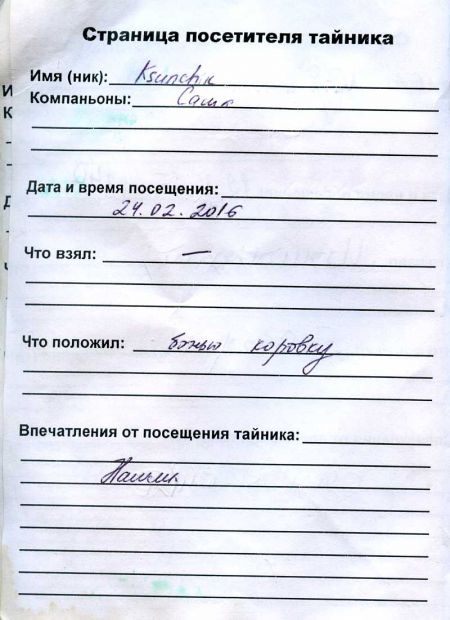 Страница посетителя тайника
Имя (ник): Ksunchik
Компаньоны: Саша
Дата и время посещения:
24.02.2016
Что взял: —
Что положил: божью коровку
Впечатления от посещения тайника:
Нашли